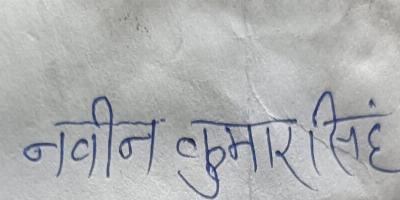 नवीन कुमार सिहं